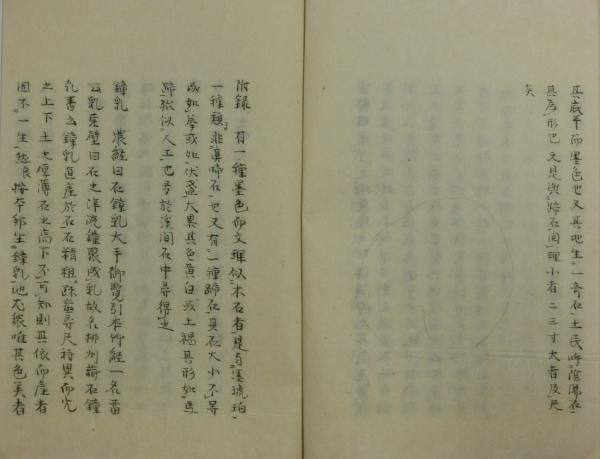 其底平而墨色也又其地生一音石土民呼陰陽石
具底形巴元是與蹄石同理小者二三寸大者及尺
矣
附録 有一種墨色而文理似木石者是有墨琥珀
一種類非真蹄石也又有一種蹄石真石大小不等
或如拳或如伏盞大異其色黄白或土褐具形如馬
蹄狀似人工也音於溪澗石中尋得之
鐘乳 濃経曰石鐘乳大平御覽引本艸経一名留
公乳東壁曰石之津液鐘聚成乳故名柳州蔚石鐘
乳書云鐘乳直產於石石精粗疎密尋尺特異而穴
之上下土之厚薄石之高下不可知則其依而產者
固不一生然食 按本邦生鐘乳地不稀唯其色美者